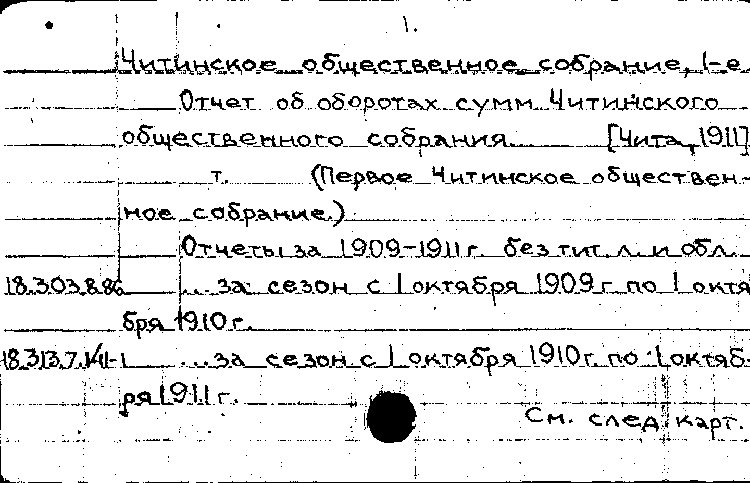 1.
Читинское общественное собрание, 1-е
Отчет об оборотах сумм Читинского
общественного собрания [Чита, 1911]
т. (Первое Читинское обществен-
ное собрание.)
Отчеты за 1909-1911 г. без тит. л. и обл.
18.303.8.86 ... за сезон с 1 октября 1909 г. по 1 октя
бря 1910 г.
18.313.7.141-1 ... за сезон с 1 октября 1910 г. по 1 октяб-
ря 1911 г.
См. след. карт.